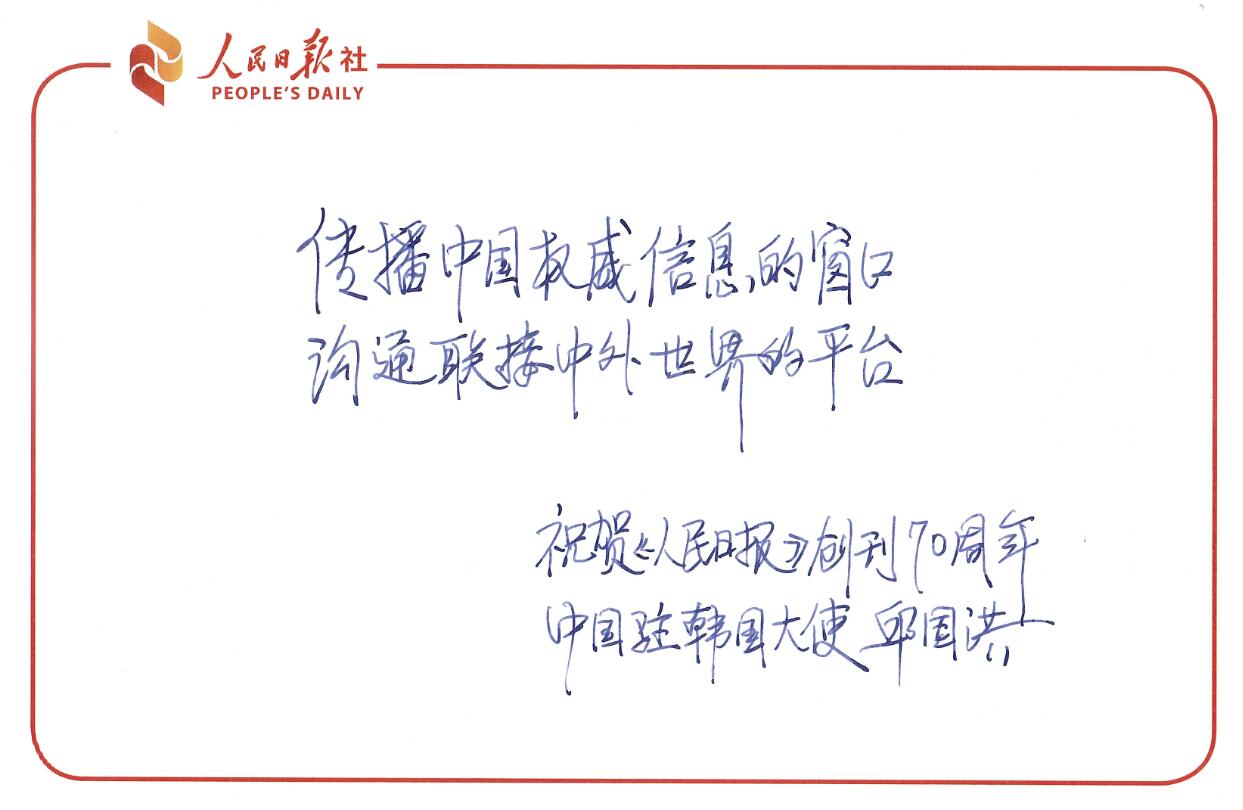 人民日报社
PEOPLE'S DAILY
传播中国权威信息的窗口
沟通联接中外世界的平台
祝贺《人民日报》创刊70周年
中国驻韩国大使 邱国洪